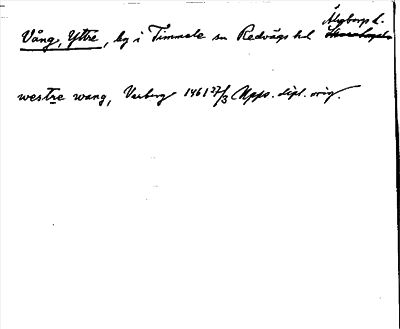 Vång, Yttre, by i Timmele sn Redvägs hd Älvsborgs l.
westre wang, Varberg 1461 27/3 Upps. dipl. orig.